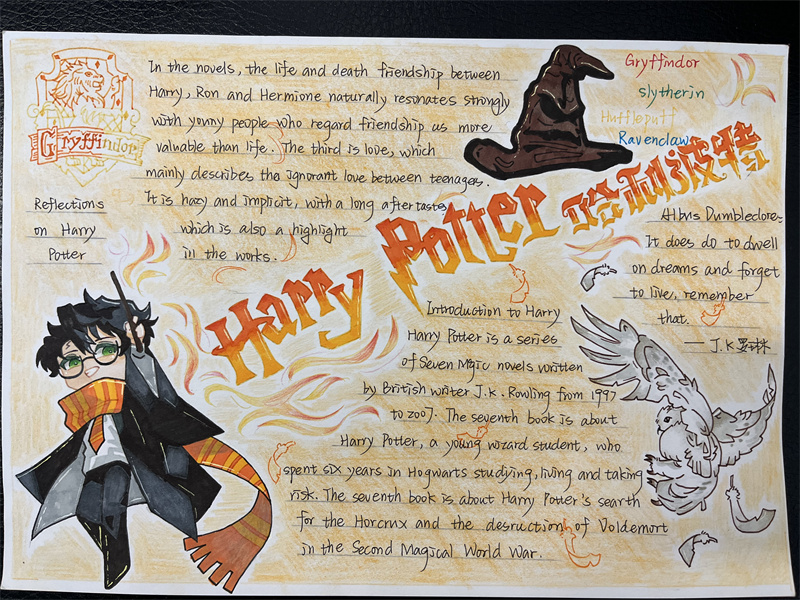 Gryffindor
In the novels, the life and death friendship between
Harry, Ron and Hermione naturally resonates strongly
with young people who regard friendship as more
valuable than life. The third is love, which
mainly describes the ignorant love between teenagers.
It is hazy and implicit, with a long aftertaste
which is also a highlight
in the works.
Reflections
on Harry
Potter
Gryffindor
slytherin
Huffleputf
Ravenclaw
Harry Potter 哈利波特
Albus Dumbledore-
It does do to dwell
on dreams and forget
to live, remember
that.
— J.K罗琳
Introduction to Harry
Harry Potter is a series
of Seven Mgic novels written
by British writer J.k. Rowling from 1997
to 2007. The seventh book is about
Harry Potter, a young wizard student, who
spent six years in Hogwarts studying, living and taking
risk. The seventh book is about Harry Potter's searth
for the Horcrnx and the desruction of Voldemort
in the Second Magical World War.